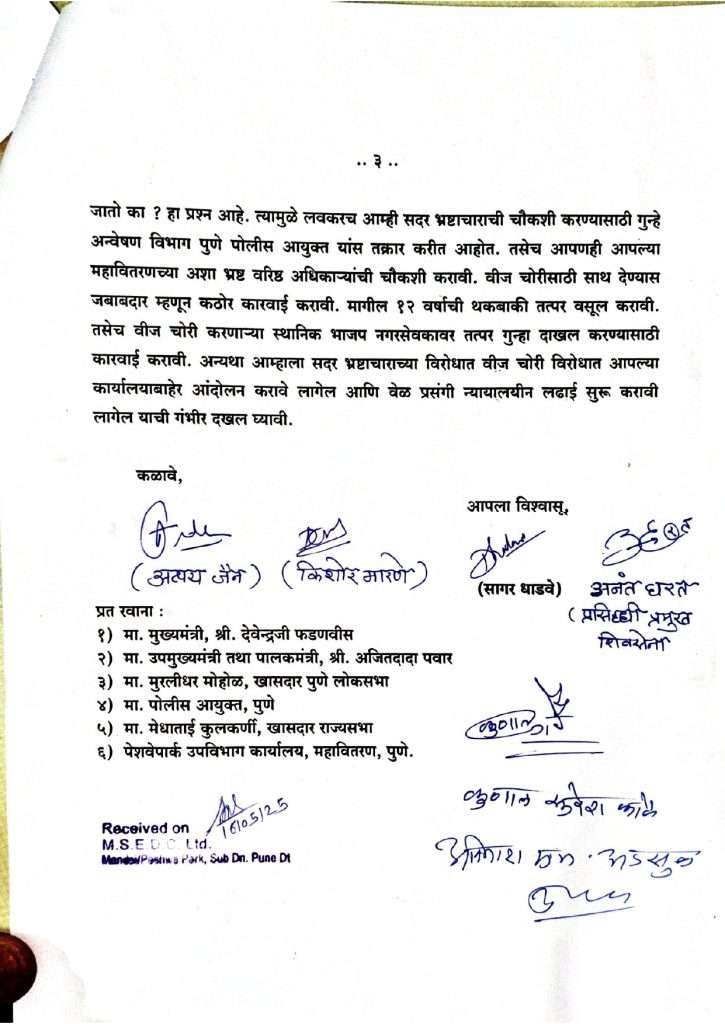 .. ३ ..
जातो का ? हा प्रश्न आहे. त्यामुळे लवकरच आम्ही सदर भ्रष्टाचाराची चौकशी करण्यासाठी गुन्हे
अन्वेषण विभाग पुणे पोलीस आयुक्त यांस तक्रार करीत आहोत. तसेच आपणही आपल्या
महावितरणच्या अशा भ्रष्ट वरिष्ठ अधिकाऱ्यांची चौकशी करावी. वीज चोरीसाठी साथ देण्यास
जबाबदार म्हणून कठोर कारवाई करावी. मागील १२ वर्षाची थकबाकी तत्पर वसूल करावी.
तसेच वीज चोरी करणाऱ्या स्थानिक भाजप नगरसेवकावर तत्पर गुन्हा दाखल करण्यासाठी
कारवाई करावी. अन्यथा आम्हाला सदर भ्रष्टाचाराच्या विरोधात वीज चोरी विरोधात आपल्या
कार्यालयाबाहेर आंदोलन करावे लागेल आणि वेळ प्रसंगी न्यायालयीन लढाई सुरू करावी
लागेल याची गंभीर दखल घ्यावी.
कळावे,
आपला विश्वासू,
( जैन ) ( किशोर मारणे ) (सागर धाडवे) अनंत घरत
( प्रसिद्धी प्रमुख
शिवसेना
प्रत रवाना :
१) मा. मुख्यमंत्री, श्री. देवेन्द्रजी फडणवीस
२) मा. उपमुख्यमंत्री तथा पालकमंत्री, श्री. अजितदादा पवार
३) मा. मुरलीधर मोहोळ, खासदार पुणे लोकसभा
४) मा. पोलीस आयुक्त, पुणे
५) मा. मेधाताई कुलकर्णी, खासदार राज्यसभा
६) पेशवेपार्क उपविभाग कार्यालय, महावितरण, पुणे.
कुणाल
कुणाल
Received on 16/05/25
M.S.E.D.C. Ltd.
Mandai/Peshwa Park, Sub Dn. Pune Dt